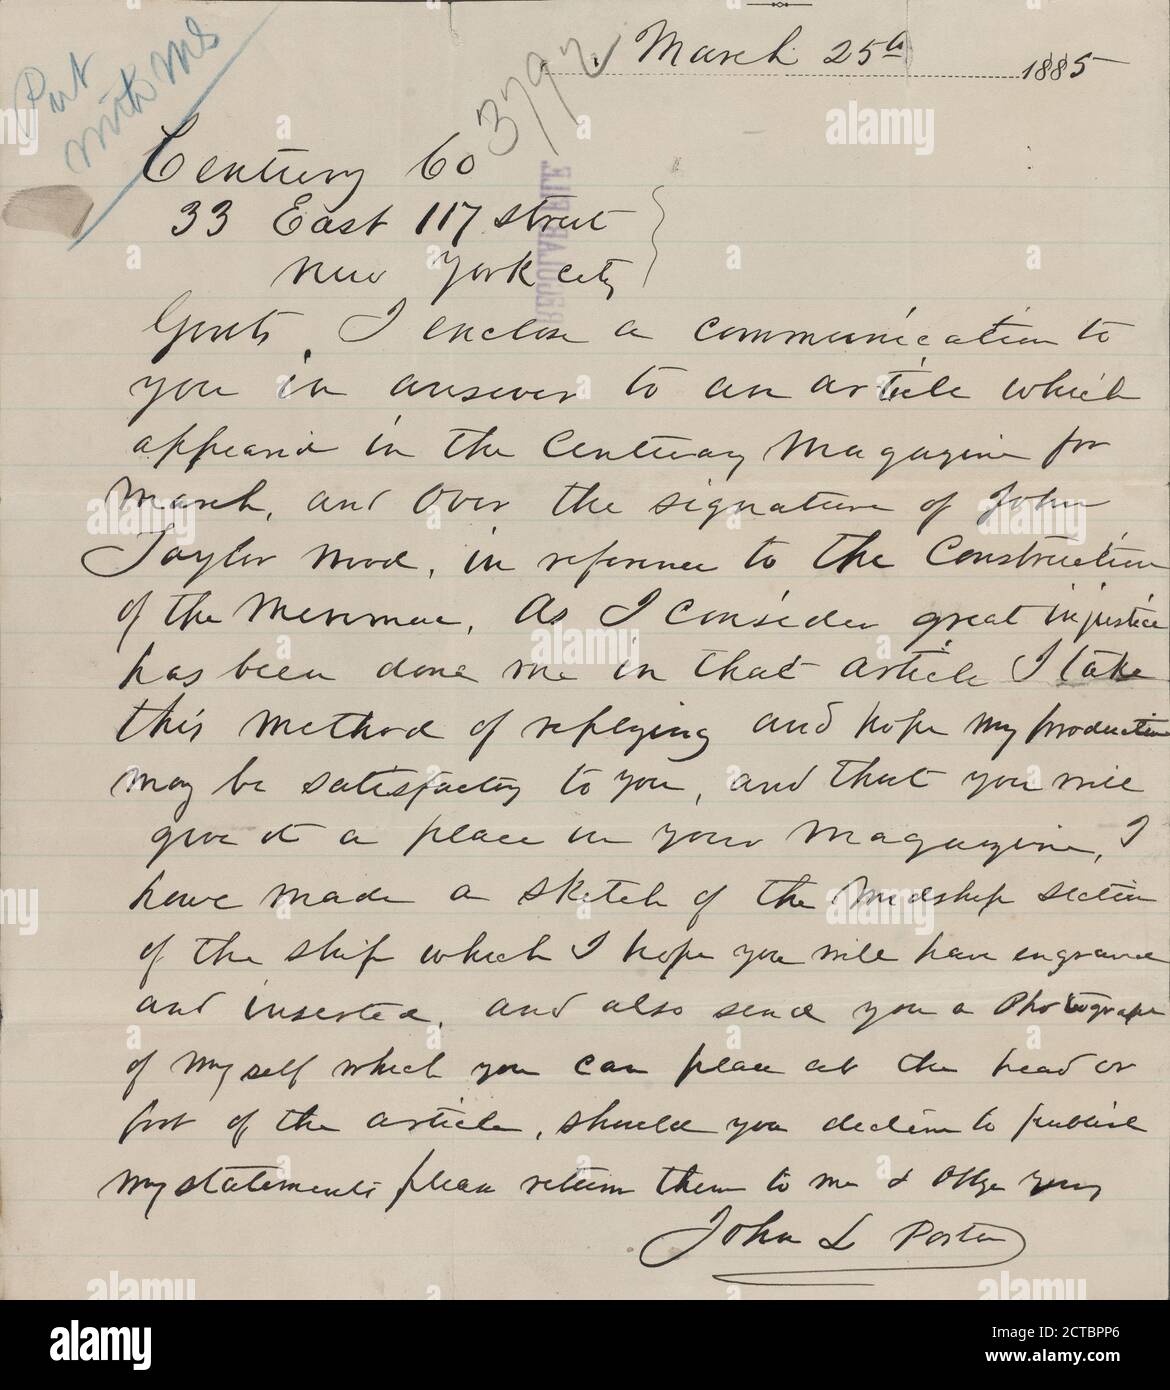 Put
with ms
3792
March 25th 1885
Century Co
33 East 117 street
New York city
REGULAR FILE
Gents, I enclose a communication to
you in answer to an article which
appeared in the Century Magazine for
March, and over the signature of John
Taylor Wood, in reference to the Construction
of the Merrimac, As I consider great injustice
has been done me in that article I take
this method of replying and hope my production
may be satisfactory to you, and that you will
give it a place in your Magazine, I
have made a sketch of the Midship section
of the ship which I hope you will have engraved
and inserted, and also send you a Photograph
of myself which you can place at the head or
foot of the article, should you decline to publish
my statements please return them to me & oblige yours
John L Porter
alamy
Image ID: 2CTBPP6
www.alamy.com